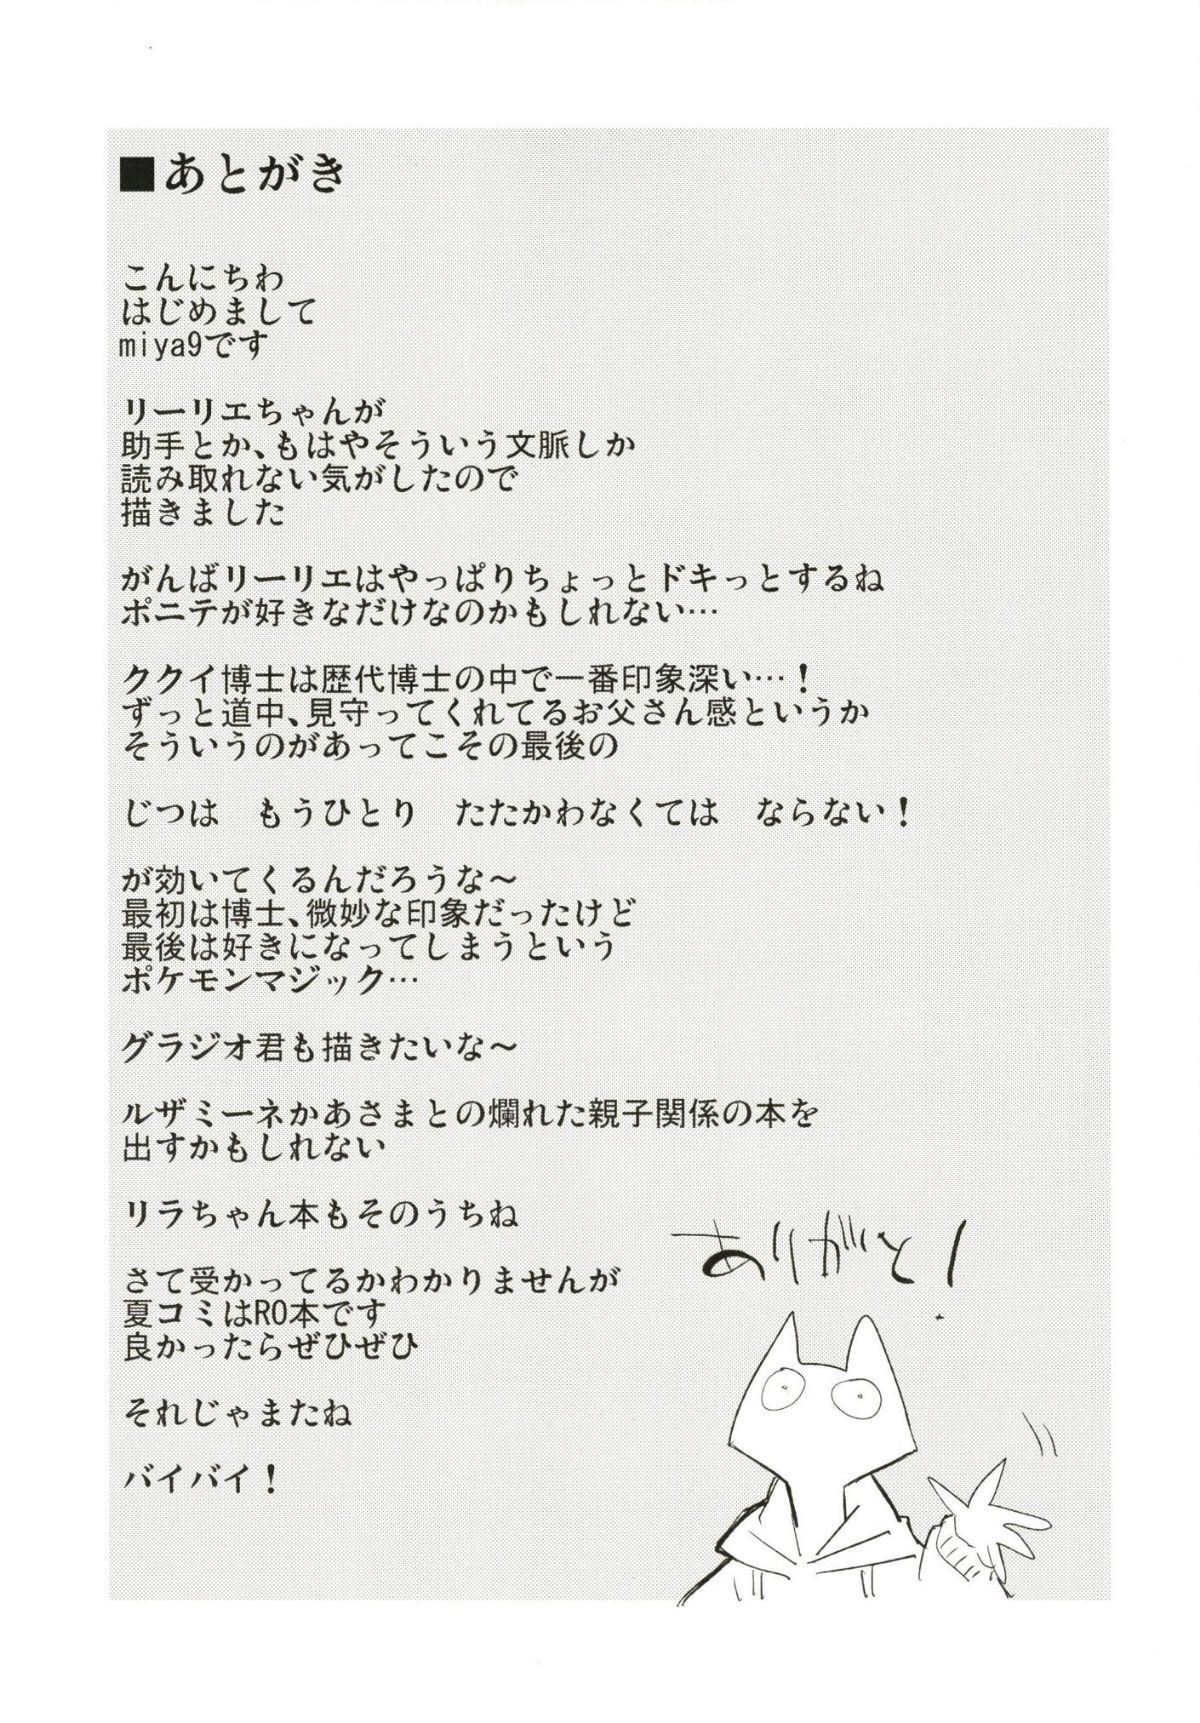 ■あとがき
こんにちわ
はじめまして
miya9です
リーリエちゃんが
助手とか、もはやそういう文脈しか
読み取れない気がしたので
描きました
がんばリーリエはやっぱりちょっとドキっとするね
ポニテが好きなだけなのかもしれない…
ククイ博士は歴代博士の中で一番印象深い…！
ずっと道中、見守ってくれてるお父さん感というか
そういうのがあってこその最後の
じつは　もうひとり　たたかわなくては　ならない！
が効いてくるんだろうな～
最初は博士、微妙な印象だったけど
最後は好きになってしまうという
ポケモンマジック…
グラジオ君も描きたいな～
ルザミーネかあさまとの爛れた親子関係の本を
出すかもしれない
リラちゃん本もそのうちね
さて受かってるかわかりませんが
夏コミはRO本です
良かったらぜひぜひ
それじゃまたね
バイバイ！
ありがと！